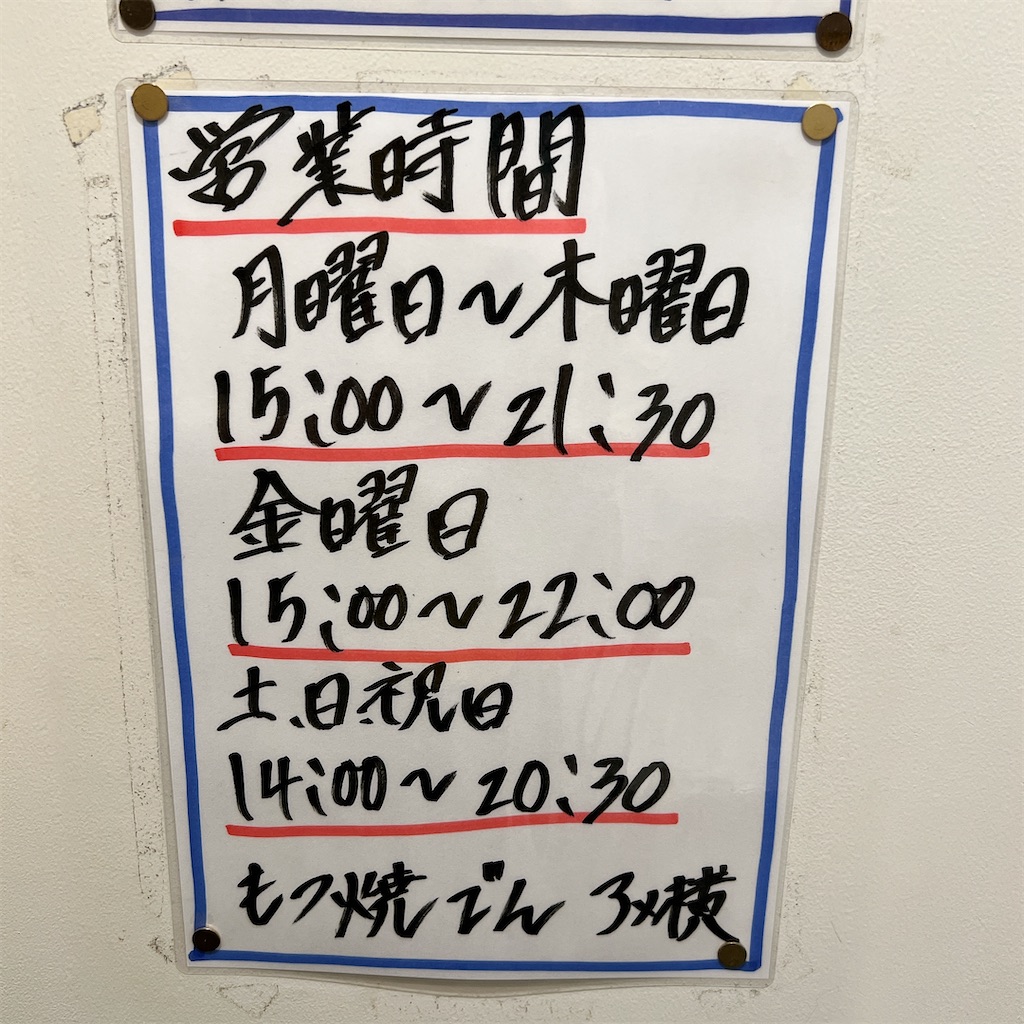 営業時間
月曜日～木曜日
15:00～21:30
金曜日
15:00～22:00
土、日、祝日
14:00～20:30
もつ焼でん アメ横